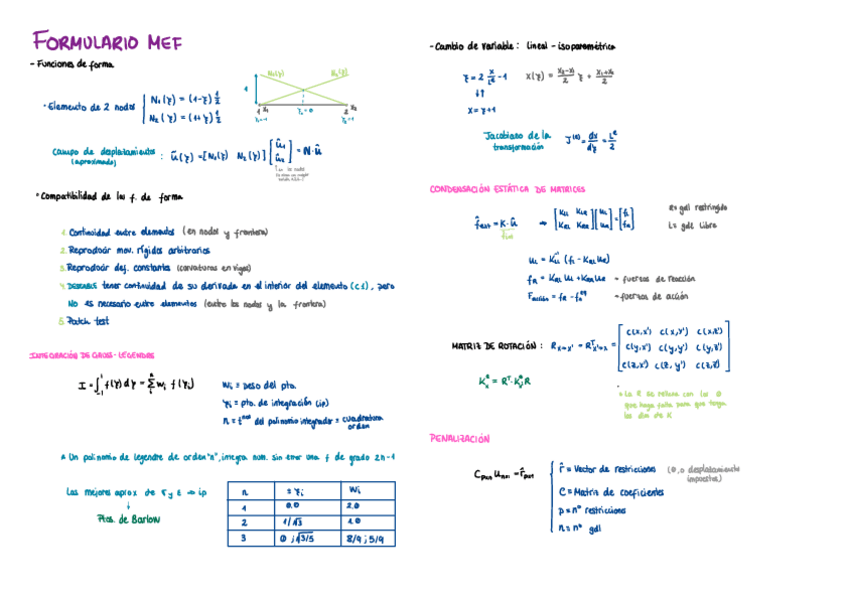 FORMULARIO MEF
- Funciones de forma
· Elemento de 2 nodos { N₁(ξ) = (1-ξ) 1/2
N₂(ξ) = (1+ξ) 1/2
N₁(ξ) N₂(ξ)
1
1 x₁ 2 x₂
ξ₁=-1 ξ=0 ξ₂=1
Campo de desplazamientos : û(ξ) = [N₁(ξ) N₂(ξ)] [û₁ û₂] = N·û
(aproximado)
· Compatibilidad de las f. de forma
1. Continuidad entre elementos (en nodos y frontera)
2. Reproducir mov. rígidos arbitrarios
3. Reproducir def. constantes (curvaturas en vigas)
4. DESEABLE tener continuidad de su derivada en el interior del elemento (C1), pero
No es necesario entre elementos (entre los nodos y la frontera)
5. Patch test
INTEGRACIÓN DE GAUSS-LEGENDRE
I = ∫₋₁¹ f(ξ) dξ = Σ wᵢ f(ξᵢ)
wᵢ = peso del pto.
ξᵢ = pto. de integración (ip)
n = del polinomio integrador = cuadratura
orden
* Un polinomio de legendre de orden "n", integra num. sin error una f de grado 2n-1
Las mejores aprox de σ y ε → ip
↓
Ptos. de Barlow
n ± ξᵢ wᵢ
1 0.0 2.0
2 1/√3 1.0
3 0 ; √3/5 8/9 ; 5/9
- Cambio de variable : lineal - isoparamétrico
ξ = 2 x/Lᵉ - 1 x(ξ) = (x₂-x₁)/2 ξ + (x₁+x₂)/2
↓↑
x = ξ+1
Jacobiano de la J⁽ᵉ⁾ = dx/dξ = Lᵉ/2
transformación
CONDENSACIÓN ESTÁTICA DE MATRICES
f̂ₑₓₜ = K·û → [K_LL K_LR K_RL K_RR] [u_L u_R] = [f_L f_R]
f_int
R = gdl restringido
L = gdl libre
u_L = K_LL⁻¹ (f_L - K_LR u_R)
f_R = K_RL u_L + K_RR u_R → fuerzas de reacción
F_acción = f_R - f_R^eq → fuerzas de acción
MATRIZ DE ROTACIÓN : R_x→x' = Rᵀ_x'→x = [c(x,x') c(x,y') c(x,z')
c(y,x') c(y,y') c(y,z')
c(z,x') c(z,y') c(z,z')]
* La R se rellena con los 0
que haga falta para que tenga
las dim de K
PENALIZACIÓN
C_pxn u_nx1 = r̂_px1
r̂ = Vector de restricciones (0, o desplazamiento
impuestos)
C = Matriz de coeficientes
p = nº restricciones
n = nº gdl